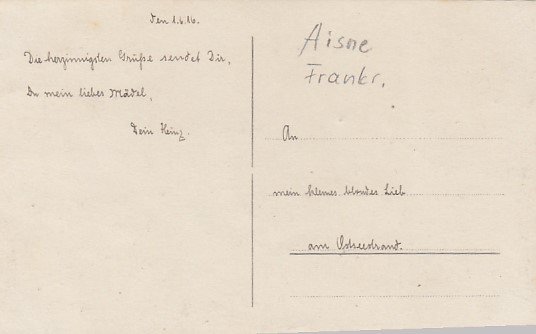 Den 1.6.16.
Die herzinnigsten Grüße sendet Dir,
Du mein liebes Mädel,
Dein Heinz.
Aisne
Frankr.
An
mein kleines blondes Lieb
am Ostseestrand.